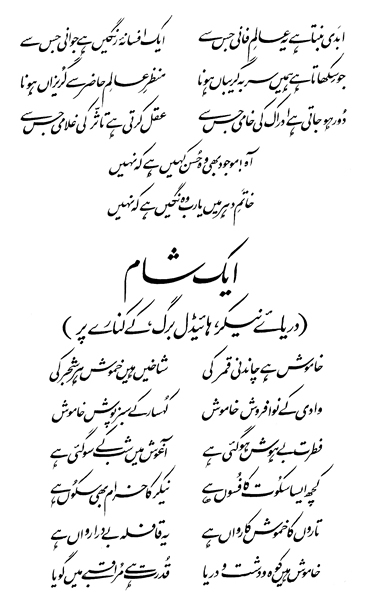 ابدی بنتا ہے یہ عالمِ فانی جس سے ایک افسانۂ رنگیں ہے جوانی جس سے
جو سکھاتا ہے ہمیں سر بہ گریباں ہونا منظرِ عالمِ حاضر سے گریزاں ہونا
دور ہو جاتی ہے ادراک کی خامی جس سے عقل کرتی ہے تاثر کی غلامی جس سے
آہ! موجود بھی وہ حُسن کہیں ہے کہ نہیں
خاتمِ دہر میں یارب وہ نگیں ہے کہ نہیں
ایک شام
(دریائے نیکر، ہائیڈل برگ، کے کنارے پر)
خاموش ہے چاندنی قمر کی شاخیں ہیں خموش ہر شجر کی
وادی کے نوا فروش خاموش کہسار کے سبز پوش خاموش
فطرت بے ہوش ہو گئی ہے آغوش میں شب کے سو گئی ہے
کچھ ایسا سکوت کا فسوں ہے نیکر کا خرام بھی سکوں ہے
تاروں کا خموش کارواں ہے یہ قافلہ بے درا رواں ہے
خاموش ہیں کوہ و دشت و دریا قدرت ہے مراقبے میں گویا